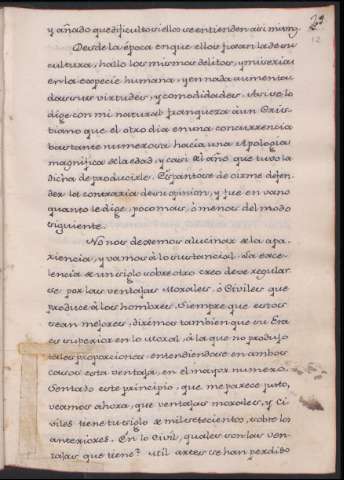 29
12
y añado que dificulto si ellos se entienden asi mismos.
Desde la época en que ellos fixan la de su
cultura, hallo los mismos delitos, y miserias
en la especie humana, y en nada aumenta
das sus virtudes, y comodidades. Asi se lo
dige con mi natural franqueza à un Cris-
tiano que el otro dia en una concurrencia
bastante numerosa hacia una Apologia
magnifica de la edad, y casi del año, que tuvo la
dicha de producirle. Espantose de oirme defen-
der la contraria de su opinion, y fue en vano
quanto le dige, poco mas, ò menos del modo
siguiente.
No nos dexemos alucinar de la apa-
riencia, y vamos à lo sustancial. La exce-
lencia de un siglo sobre otro creo debe regular-
se por las ventajas Morales, ò Civiles que
produce à los hombres. Siempre que estos
sean mejores, dirémos tambien que su Era
es superior en lo Moral, à la que no produjo
tales proporciones entendiendose en ambos
casos esta ventaja, en el mayor numero.
Sentado este principio, que me parece justo,
veamos ahora, que ventajas morales, y Ci-
viles tiene tu siglo de mil setecientos, sobre los
anteriores. En lo Civil, quales son las ven-
tajas que tiene? util artes se han perdido